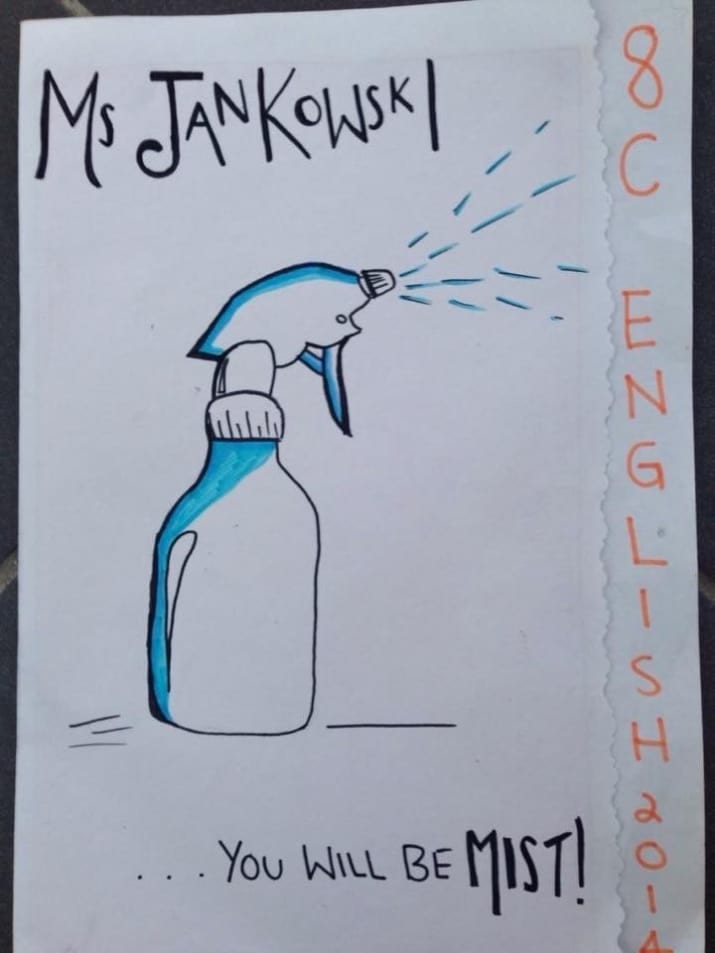 Ms JANKOWSKI
... YOU WILL BE MIST!
8C ENGLISH 2014